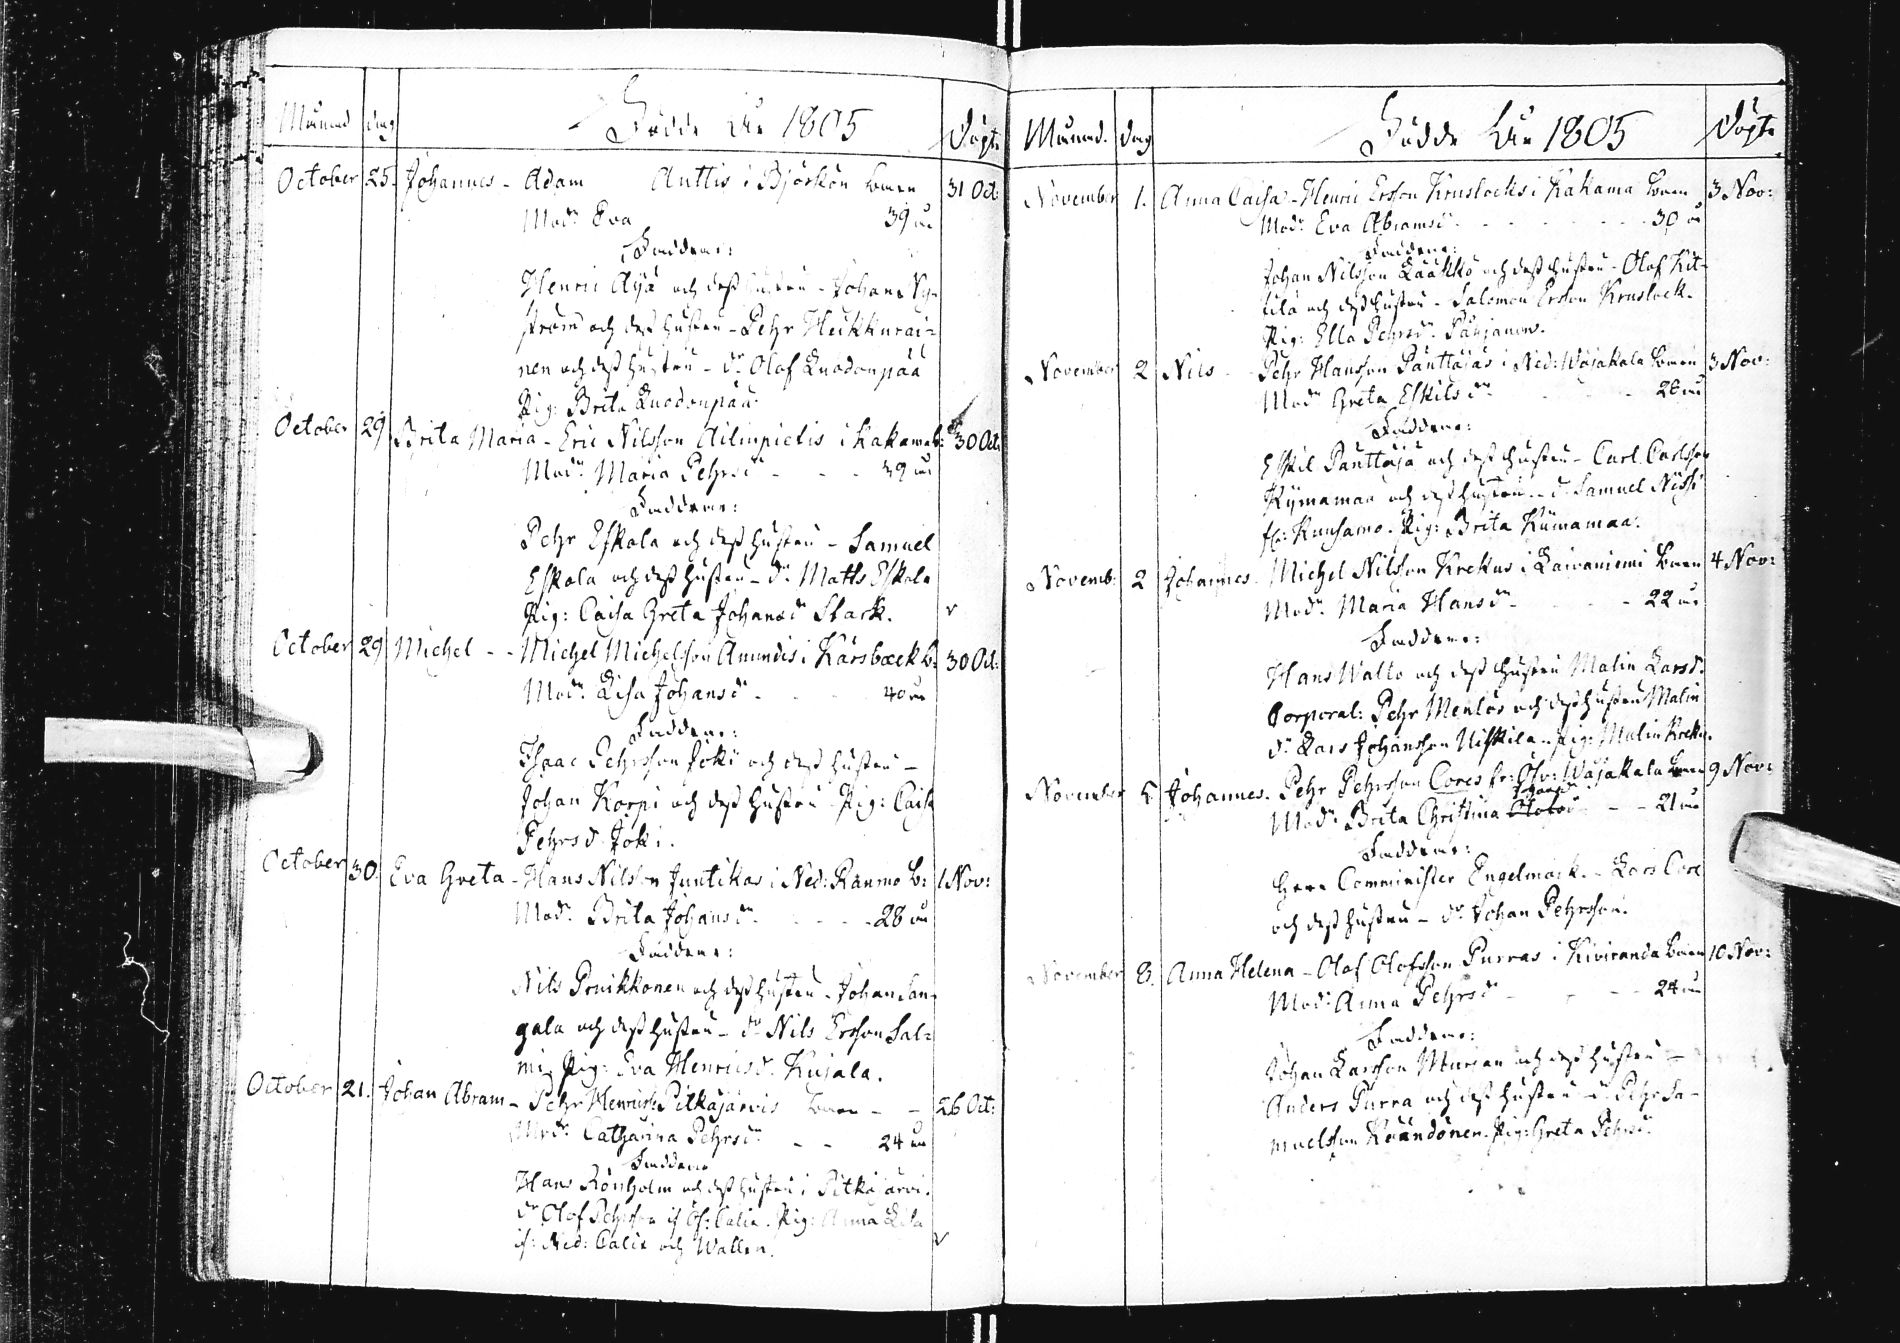 Månad dag Födde År 1805 Döpte
October 25. Johannes - Adam Anttis i Björkön barn 31 Oct:
Modr Eva 39 år
Faddrar:
Henric Äijä och dess hustru - Johan Ny-
ström och dess hustru - Pehr Heikkurai=
nen och dess hustru - dr Olof Quodonpää
Pig: Brita Quodonpää.
October 29 Brita Maria - Eric Nilsson Ailinpietis i Kakama b: 30 Oct:
Modr Maria Pehrsdr - - - 39 år
Faddrar:
Pehr Eskola och dess hustru - Samuel
Eskola och dess hustru - dr Matts Eskola
Pig: Caisa Greta Johansdr Stark.
October 29 Michel - - Michel Michelsson Amundis i Karsbäck b: 30 Oct:
Modr Lisa Johansdr - - - 40 år
Faddrar:
Isaac Pehrsson Joki och dess hustru -
Johan Korpi och dess hustru Pig: Caisa
Pehrsd Joki.
October 30. Eva Greta - Hans Nilsson Juntikas i Ned: Raumo b: 1 Nov:
Modr Brita Johansdr - - - 28 år
Faddrar:
Nils Pruikkonen och dess hustru - Johan San=
gala och dess hustru - dr Nils Ersson Sal=
mi. Pig: Eva Henricsdr Kujala.
October 21. Johan Abram - Pehr Henricss: Pitkäjärvis barn - - 26 Oct:
Modr Catharina Pehrsdr - - 24 år
Faddrar
Hans Rönholm och dess hustru i Pitkäjärvi.
dr Olof Pehrsson if Öf: Calix. Pig: Anna Lisa
if: Ned: Calix och Wallen.
Månad. dag Födde År 1805 Döpte
November 1. Anna Caisa - Henric Ersson Kruslocks i Kakama barn 3 Nov:
Modr Eva Abramsdr - - - 30 år
Faddrar:
Johan Nilsson Lääkkö och dess hustru - Olof Kit-
tilä och dess hustru - Salomon Ersson Kruslock.
Pig: Ella Pehrsdr
November 2 Nils - Pehr Hansson Panttajas i Ned: Wojakala barn 3 Nov:
Modr Greta Eskilsdr - - 28 år
Faddrar:
Eskil Panttaja och dess hustru - Carl Carlsson
Kijmamaa och dess hustru - dr Samuel Nissi
fr: Kuusamo. Pig: Brita Kiimamaa.
Novemb: 2 Johannes - Michel Nilsson Krekus i Laivaniemi barn 4 Nov:
Modr Maria Hansdr - - - 22 år
Faddrar:
Hans Wallo och dess hustru Malin Larsdr
Corporal: Pehr Menlös och dess hustru Malin
dr Lars Johansson Uiskila - Pig: Malin Kreku.
November 5 Johannes. Pehr Pehrsson Cores fr: Öfv: Wojakala barn 9 Nov:
Modr Brita Christina Johansdr - - 21 år
Faddrar:
Herr Comminister Engelmark. - Lars Core
och dess hustru - dr Johan Pehrsson.
November 8. Anna Helena - Olof Olofsson Purras i Kiviranda barn 10 Nov:
Modr Anna Pehrsdr - - - 24 år
Faddrar:
Johan Larsson Marjan och dess hustru -
Anders Purra och dess hustru - dr Pehr Sa-
muelsson Räändönen. Pig: Greta Pehrsdr.